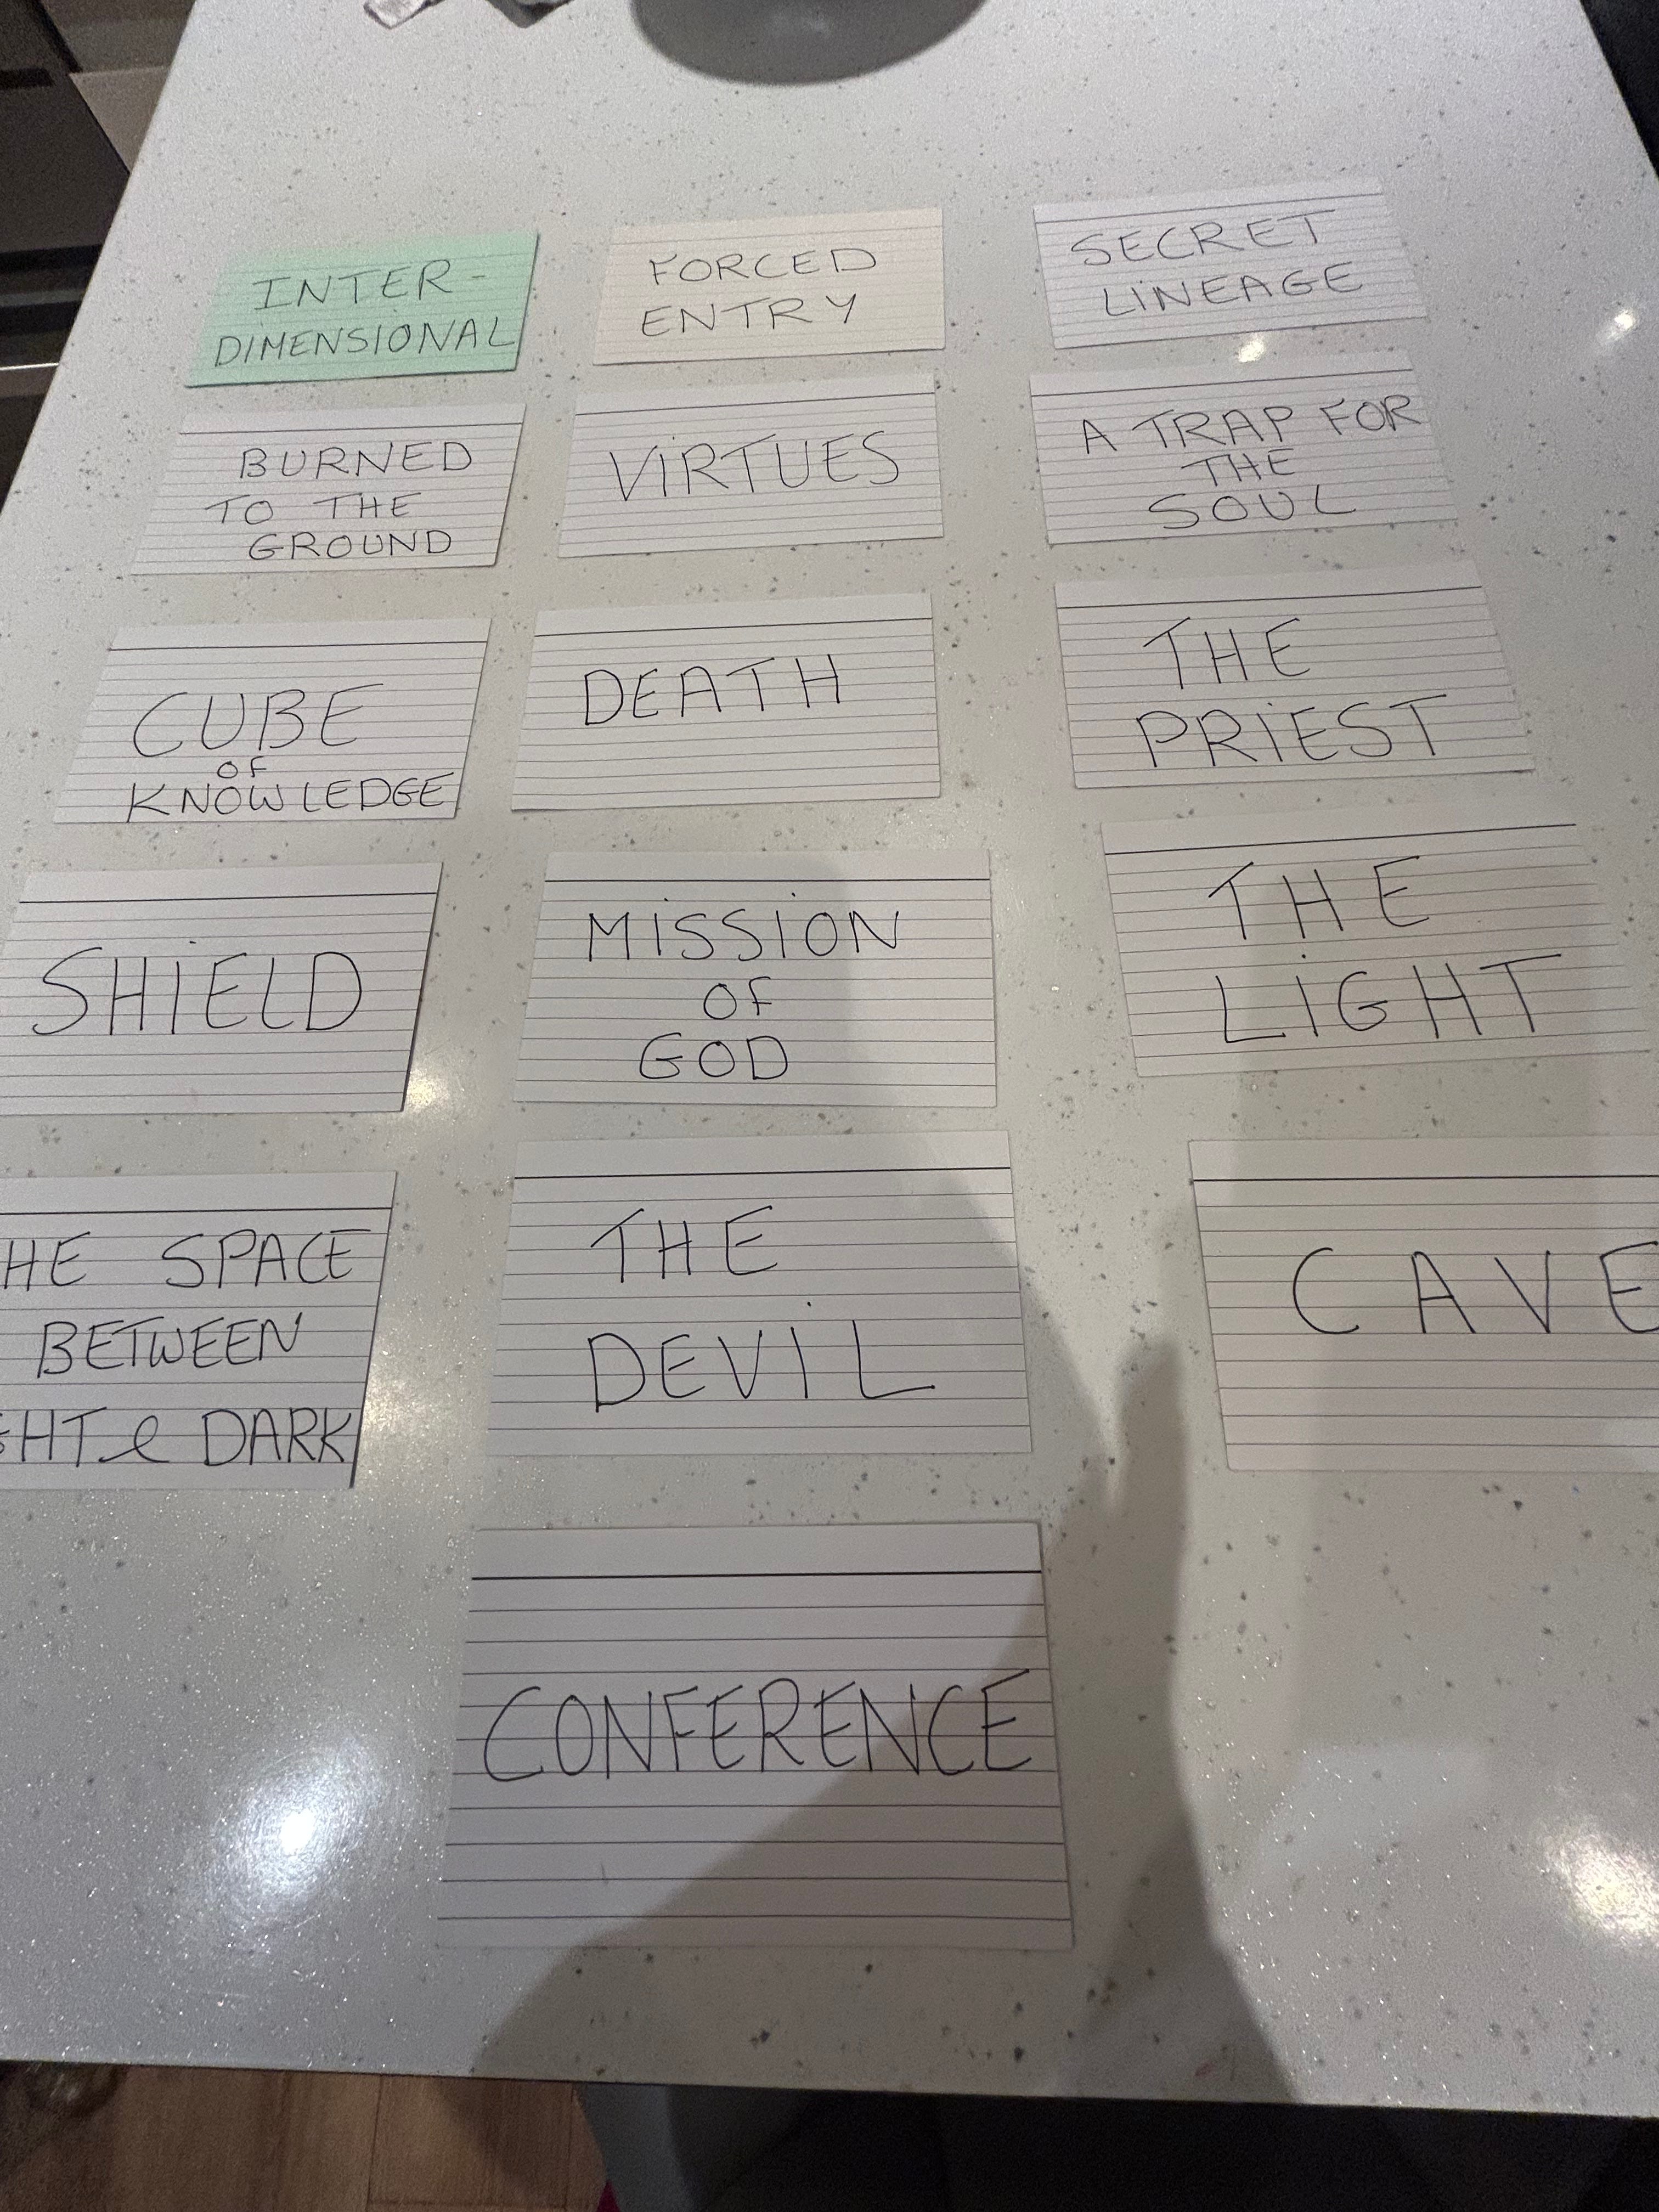 INTER-
DIMENSIONAL
FORCED
ENTRY
SECRET
LINEAGE
BURNED
TO THE
GROUND
VIRTUES
A TRAP FOR
THE
SOUL
CUBE
OF
KNOWLEDGE
DEATH
THE
PRIEST
SHIELD
MISSION
OF
GOD
THE
LIGHT
HE SPACE
BETWEEN
GHT & DARK
THE
DEVIL
CAVE
CONFERENCE